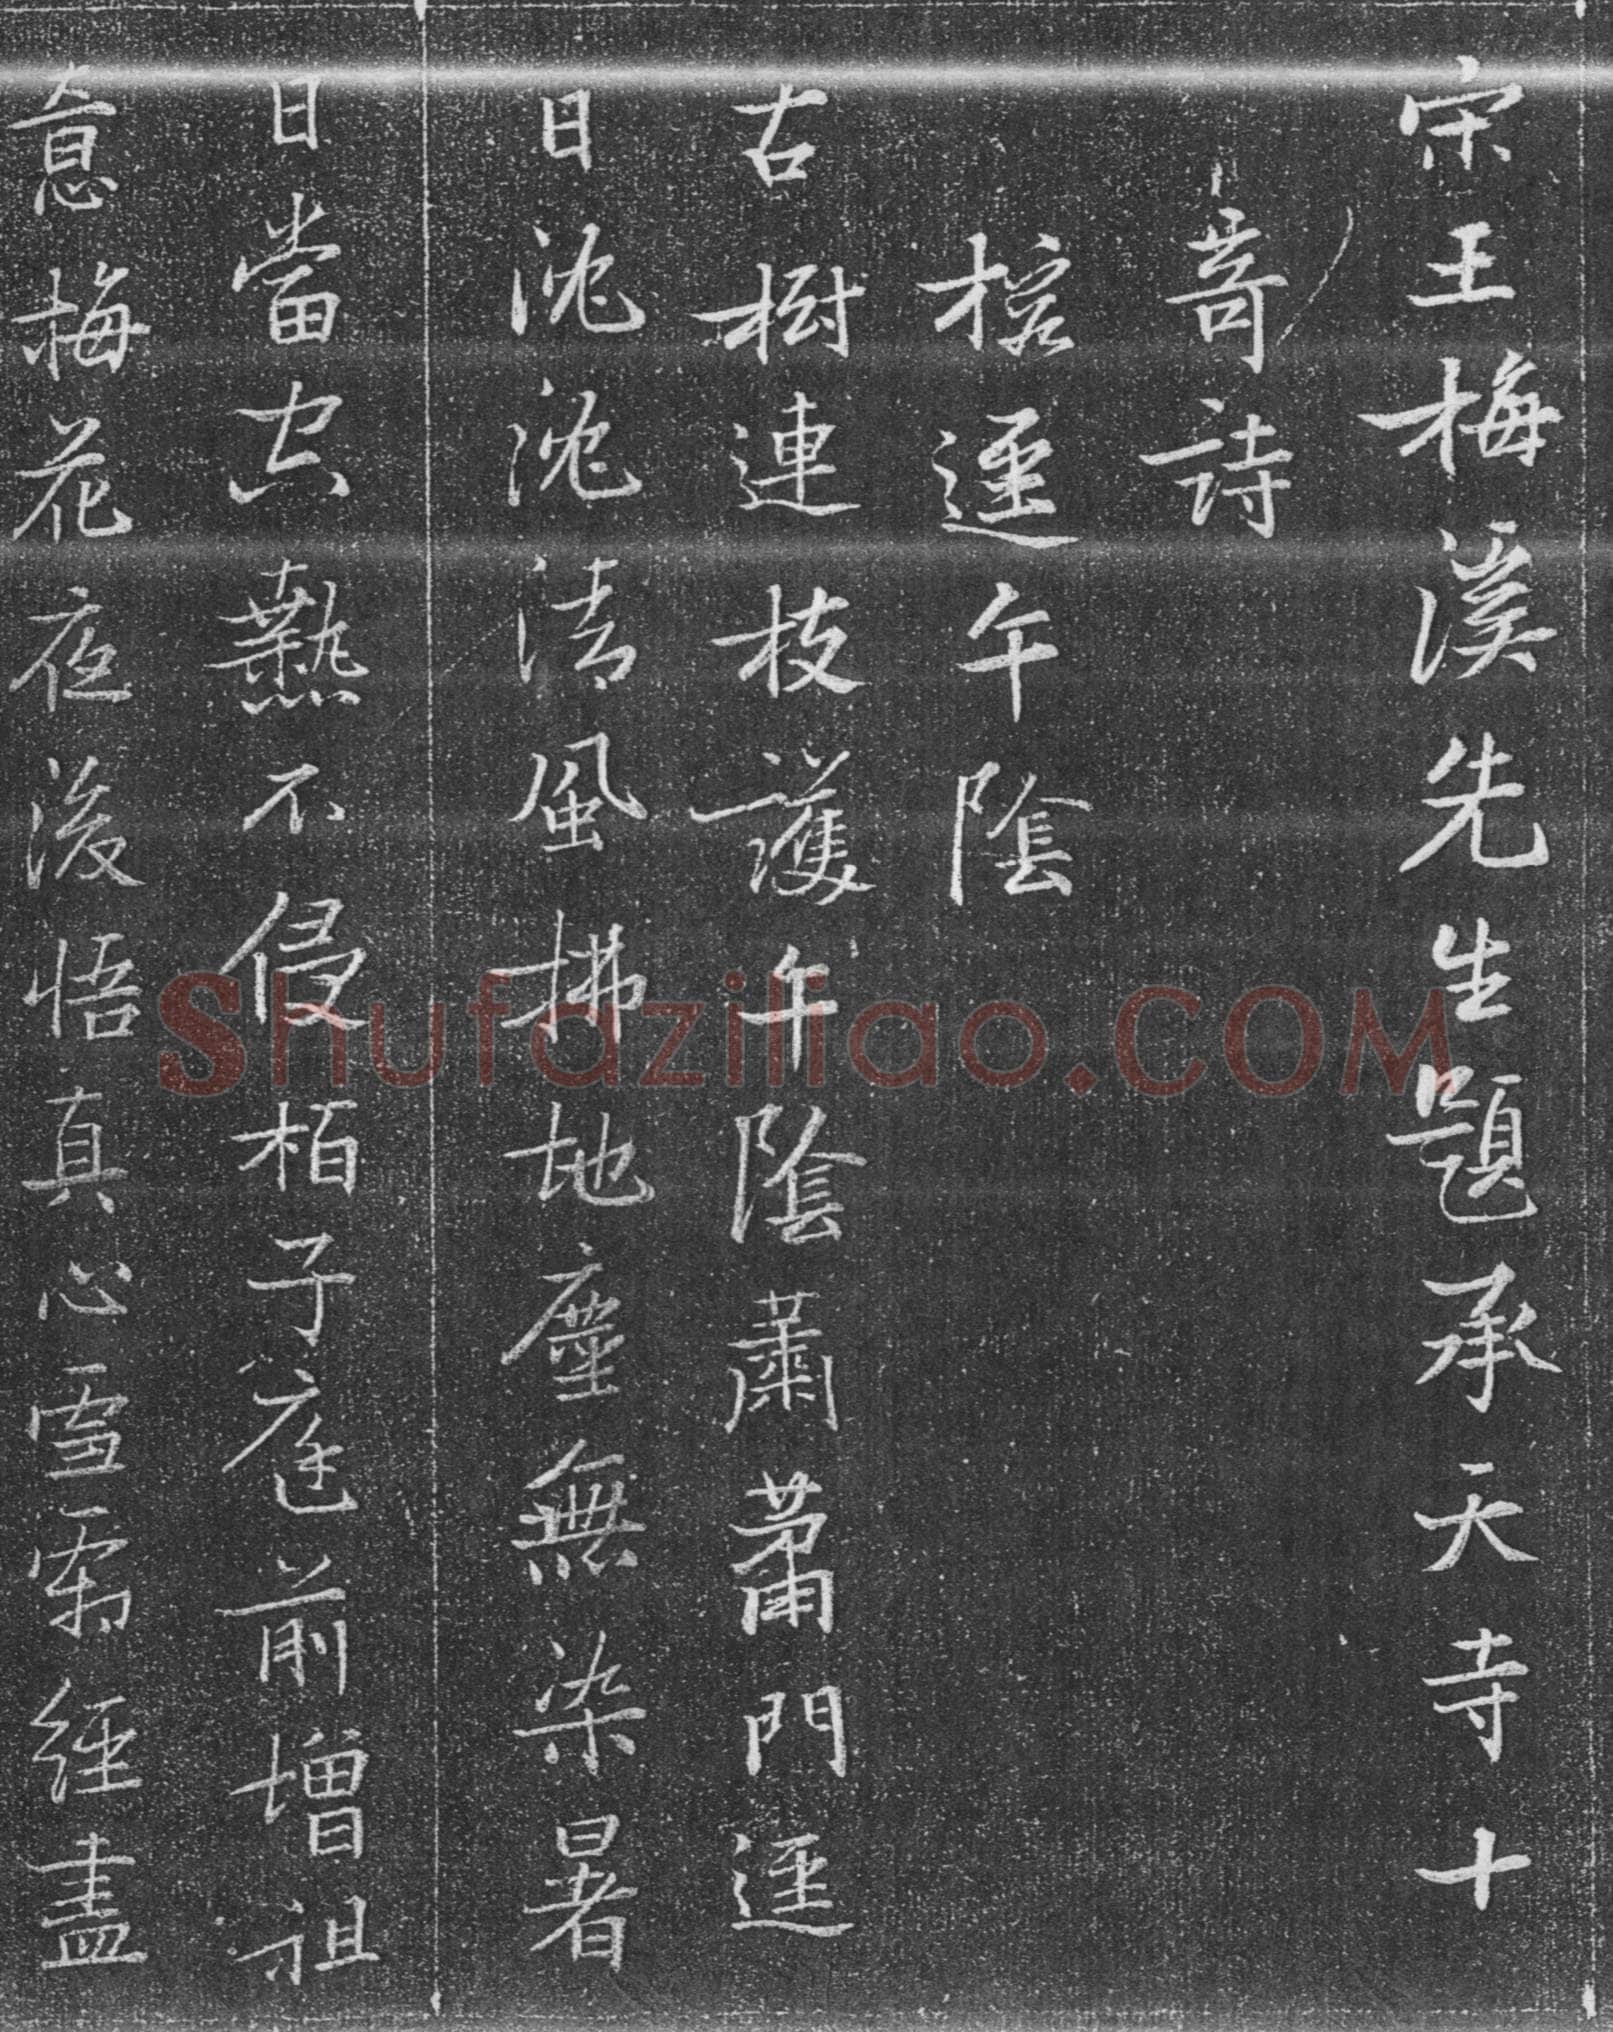 宋王梅溪先生題承天寺十
奇詩
榕逕午陰
古樹連枝護午陰蕭蕭門逕
日沈沈清風拂地塵無染暑
日當空熱不侵栢子庭前增祖
意梅花夜後悟真心雪霜經盡
Shufaziliao.COM